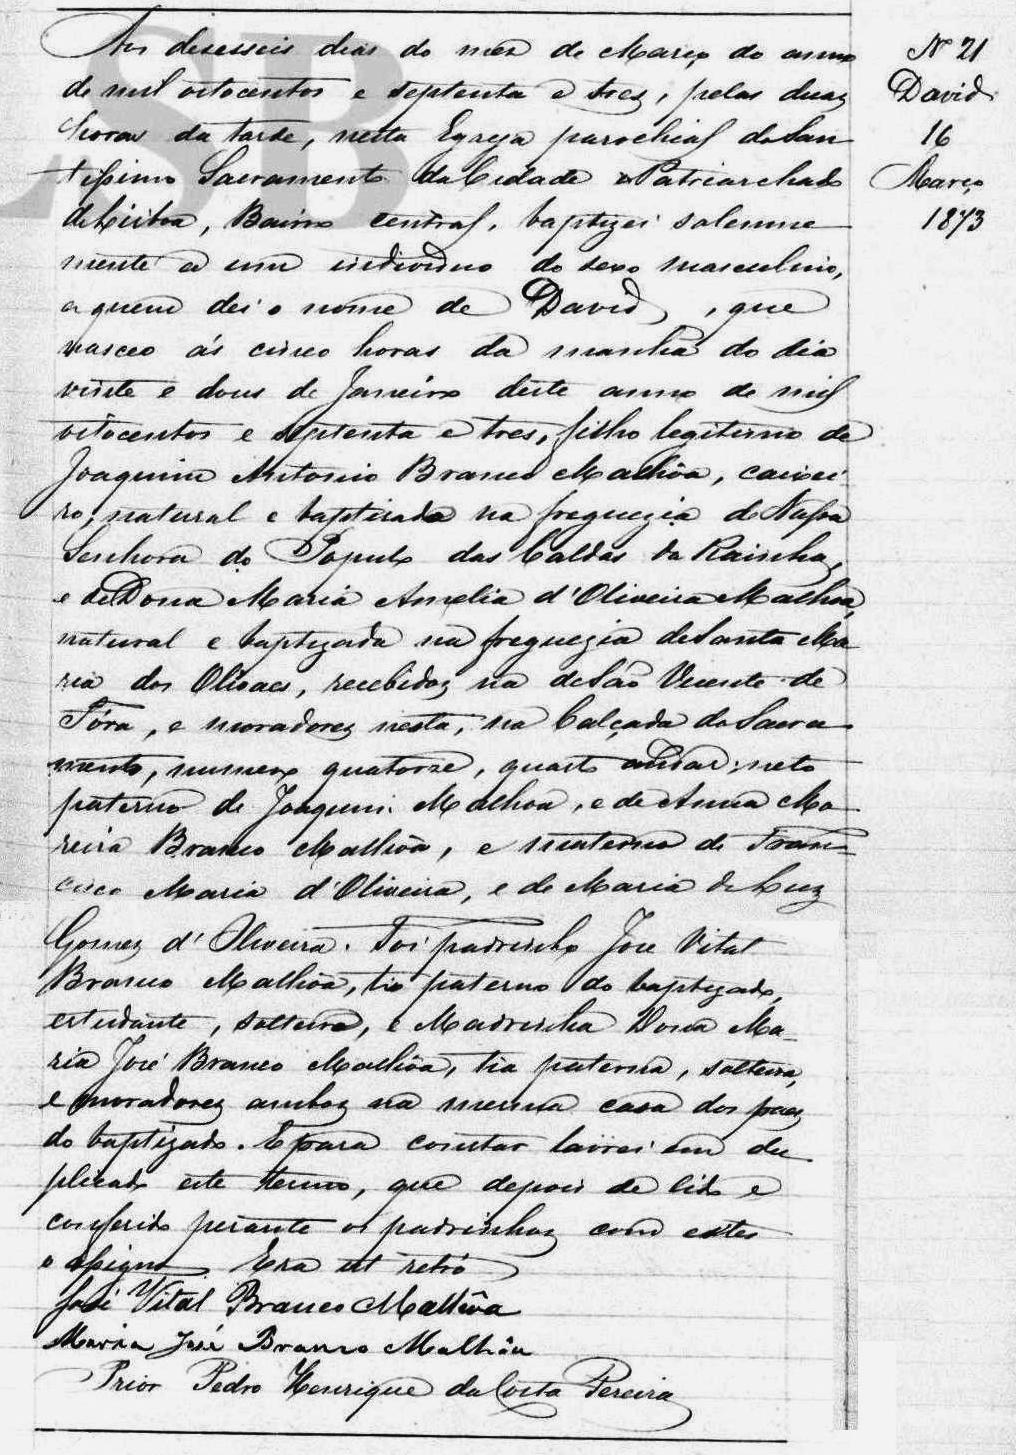 Aos desesseis dias do mez de Março do anno
de mil oitocentos e septenta e tres, pelas duas
horas da tarde, nesta Egreja parochial do San
tissimo Sacramento da Cidade e Patriarchado
de Lisboa, Bairro central, baptizei solemne
mente a um individuo do sexo masculino,
a quem dei o nome de David, que
nasceo ás cinco horas da manhã do dia
vinte e dous de Janeiro deste anno de mil
oitocentos e septenta e tres, filho legitimo de
Joaquim Antonio Branco Malhôa, caixei
ro, natural e baptizado na freguezia de Nossa
Senhora do Populo das Caldas da Rainha,
e de Dona Maria Amelia d'Oliveira Malhôa,
natural e baptizada na freguezia de Santa Ma
ria dos Olivaes, recebidos na de São Vicente de
Fóra, e moradores nesta, na Calçada do Sacra
mento, numero quatorze, quarto andar; neto
paterno de Joaquim Malhôa, e de Anna Mo
reira Branco Malhôa, e materno de Fran=
cisco Maria d'Oliveira, e de Maria da Luz
Gomes d'Oliveira. Foi padrinho José Vital
Branco Malhôa, tio paterno do baptizado,
estudante, solteiro, e Madrinha Dona Ma-
ria José Branco Malhôa, tia paterna, solteira,
e moradores ambos na mesma casa dos paes
do baptizado. E para constar lavrei em du
plicado este termo, que depois de lido e
conferido perante os padrinhos com estes
o assigno Era ut retró
José Vital Branco Malhôa
Maria José Branco Malhôa
Prior Pedro Henrique da Costa Pereira
Nº 21
David
16
Março
1873
SB